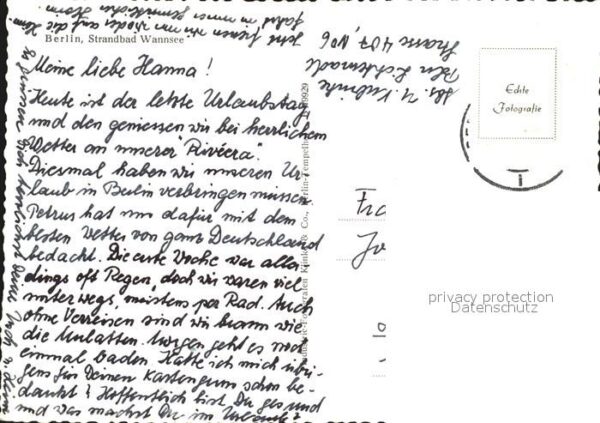 Berlin, Strandbad Wannsee
Meine liebe Hanna!
Heute ist der letzte Urlaubstag
und den geniessen wir bei herrlichem
Wetter an unserer "Riviera".
Diesmal haben wir unseren Ur-
laub in Berlin verbringen müssen.
Petrus hat uns dafür mit dem
besten Wetter von ganz Deutschland
bedacht. Die erste Woche war aller-
dings oft Regen, doch wir waren viel
unterwegs, meistens per Rad. Auch
ohne Verreisen sind wir braun wie
die Mulatten. Morgen geht es noch
einmal baden. Hatte ich mich übri-
gens für Deinen Kartengruss schon be-
dankt? Hoffentlich bist Du gesund
und was machst Du im Urlaub?
Jetzt freuen wir uns wieder auf die
Strasse 407, No 6
Echte
Fotografie
Fra
Jo
privacy protection
Datenschutz